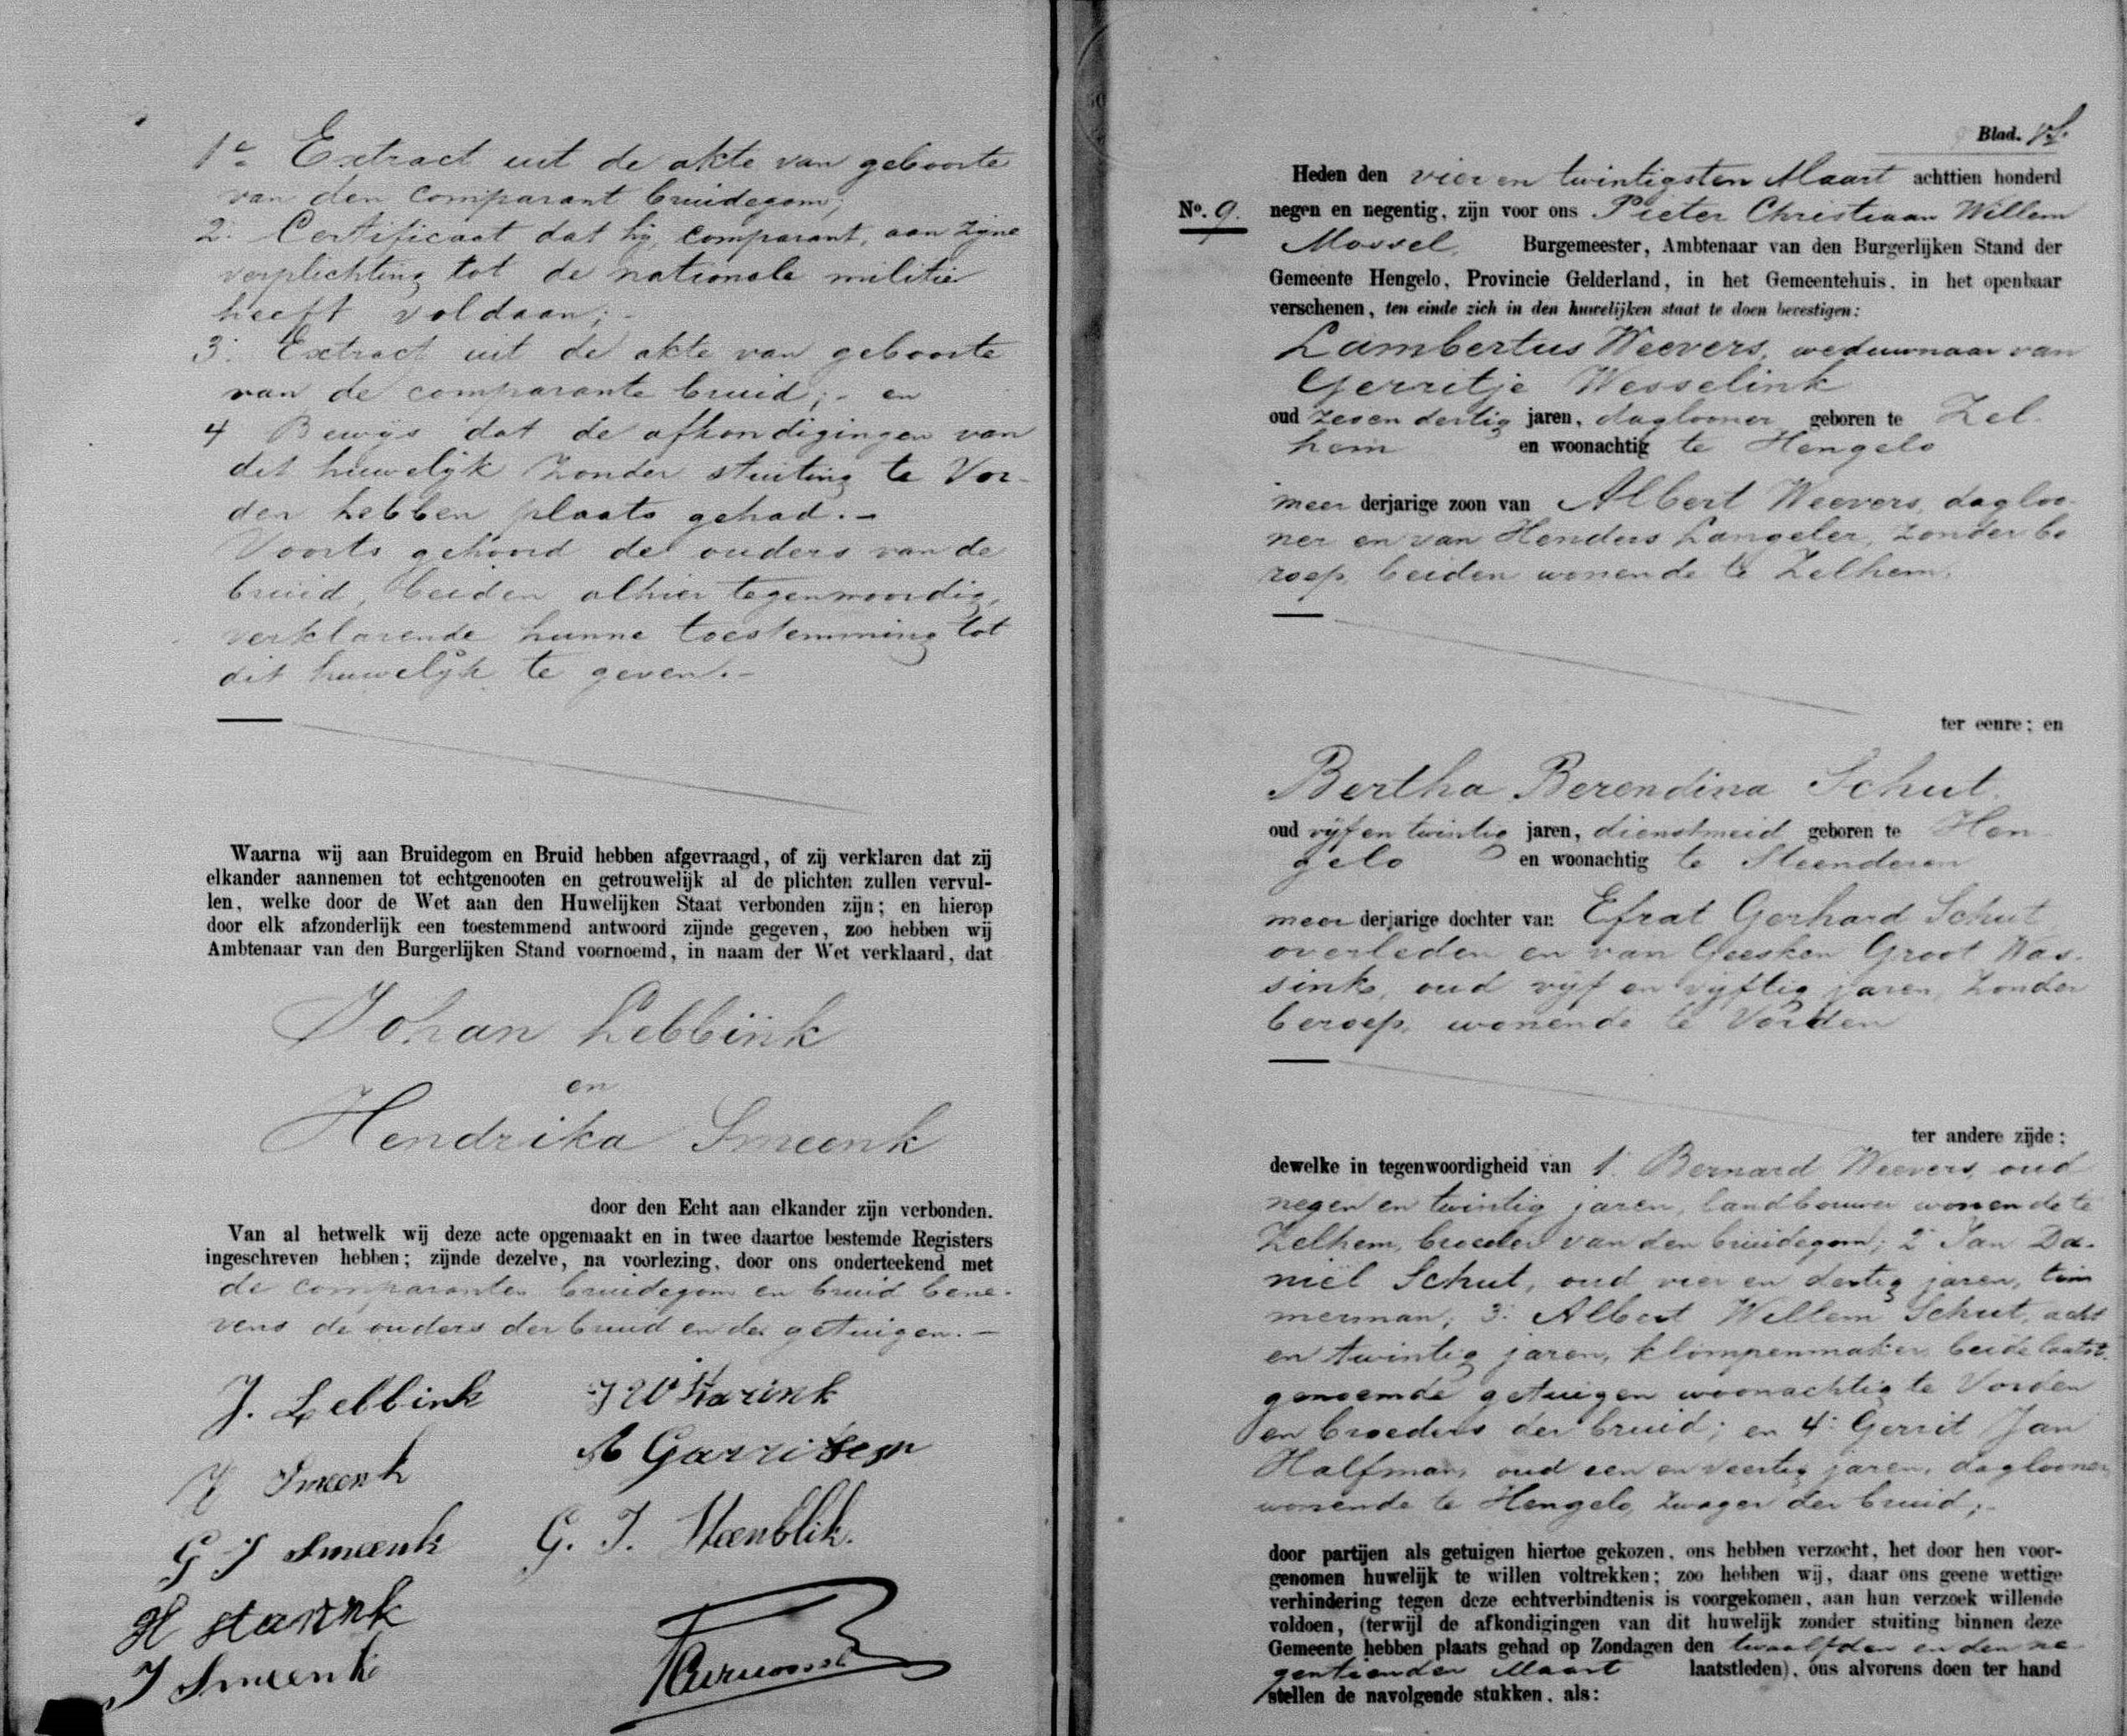 1e Extract uit de akte van geboorte
van den comparant bruidegom;
2. Certificaat dat hij, comparant, aan zijne
verplichting tot de nationale militie
heeft voldaan; -
3. Extract uit de akte van geboorte
van de comparante bruid; - en
4 Bewijs dat de afkondigingen van
dit huwelijk zonder stuiting te Vor-
den hebben plaats gehad. -
Voorts gehoord de ouders van de
bruid, beiden alhier tegenwoordig,
verklarende hunne toestemming tot
dit huwelijk te geven. -
Waarna wij aan Bruidegom en Bruid hebben afgevraagd, of zij verklaren dat zij
elkander aannemen tot echtgenooten en getrouwelijk al de plichten zullen vervul-
len, welke door de Wet aan den Huwelijken Staat verbonden zijn; en hierop
door elk afzonderlijk een toestemmend antwoord zijnde gegeven, zoo hebben wij
Ambtenaar van den Burgerlijken Stand voornoemd, in naam der Wet verklaard, dat
Johan Lebbink
en
Hendrika Smeenk
door den Echt aan elkander zijn verbonden.
Van al hetwelk wij deze acte opgemaakt en in twee daartoe bestemde Registers
ingeschreven hebben; zijnde dezelve, na voorlezing, door ons onderteekend met
de comparanten bruidegom en bruid bene-
vens de ouders der bruid en de getuigen. -
J. Lebbink
H Smeenk
G J Smeenk
H
J Smeenk
A Garritsen
G. J.
Blad.
Heden den vier en twintigsten Maart achttien honderd
No. 9. negen en negentig, zijn voor ons Pieter Christiaan Willem
Mossel, Burgemeester, Ambtenaar van den Burgerlijken Stand der
Gemeente Hengelo, Provincie Gelderland, in het Gemeentehuis, in het openbaar
verschenen, ten einde zich in den huwelijken staat te doen bevestigen:
Lambertus Weevers, weduwnaar van
Gerritje Wesselink
oud zeven dertig jaren, daglooner geboren te Zel-
hem en woonachtig te Hengelo
meer derjarige zoon van Albert Weevers, dagloo-
ner en van Henders Langeler, zonder be
roep, beiden wonende te Zelhem.
ter eenre; en
Bertha Berendina Schut
oud vijf en twintig jaren, dienstmeid geboren te Hen
gelo en woonachtig te Steenderen
meer derjarige dochter van Efrat Gerhard Schut
overleden en van Geesken Groot Was-
sink, oud vijf en vijftig jaren, zonder
beroep, wonende te Vorden
ter andere zijde;
dewelke in tegenwoordigheid van 1. Bernard Weevers, oud
negen en twintig jaren, landbouwer wonende te
Zelhem, broeder van den bruidegom; 2 Jan Da-
niël Schut, oud vier en dertig jaren, tim
merman; 3. Albert Willem Schut, acht
en twintig jaren, klompenmaker, beide laatst-
genoemde getuigen woonachtig te Vorden
en broeders der bruid; en 4. Gerrit Jan
Halfman, oud een en veertig jaren, daglooner,
wonende te Hengelo, zwager der bruid; -
door partijen als getuigen hiertoe gekozen, ons hebben verzocht, het door hen voor-
genomen huwelijk te willen voltrekken; zoo hebben wij, daar ons geene wettige
verhindering tegen deze echtverbindtenis is voorgekomen, aan hun verzoek willende
voldoen, (terwijl de afkondigingen van dit huwelijk zonder stuiting binnen deze
Gemeente hebben plaats gehad op Zondagen den twaalfden en den ne
gentienden Maart laatstleden), ons alvorens doen ter hand
stellen de navolgende stukken, als: